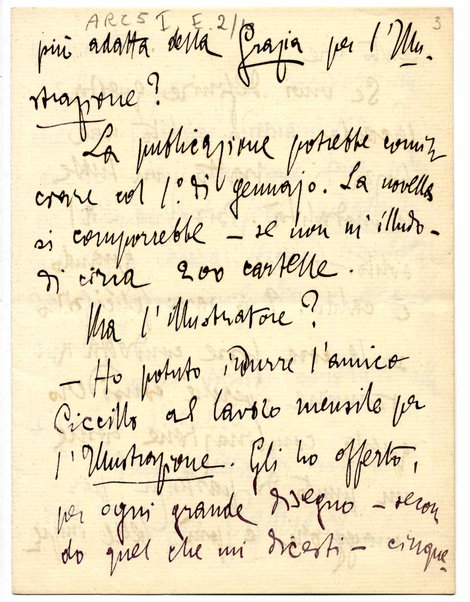 ARC 5 I. E. 2/10
3
più adatta della Grazia per l'Illu-
strazione?
La publicazione potrebbe comin
ciare col 1º di gennajo. La novella
si comporrebbe – se non m'illudo –
di circa 200 cartelle.
Ma l'illustratore?
– Ho potuto indurre l'amico
Ciccillo al lavoro mensile per
l'Illustrazione. Gli ho offerto,
per ogni grande disegno – secon
do quel che mi dicesti – cinque-